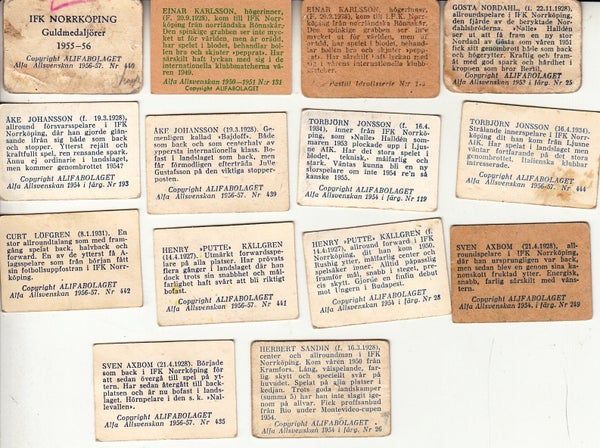 IFK NORRKÖPING
Guldmedaljörer
1955—56
Copyright ALIFABOLAGET
Alfa Allsvenskan 1956-57. Nr 440
EINAR KARLSSON, högerinner,
(F. 20.9.1928), kom till IFK Norr-
köping från norrländska Rönnskär.
Den spinkige grabben ser inte myc-
ket ut för världen, men är orädd,
har spelet i blodet, behandlar bol-
len och skjuter »pepprat». Har
särskilt haft lyckan med sig i de
internationella klubbmatcherna våren
1949.
Copyright ALIFABOLAGET
Alfa Allsvenskan 1950—1951 Nr: 131
EINAR KARLSSON, högerinner,
GÖSTA NORDAHL, (f. 22.11.1928),
allroundspelare i IFK Norrköping,
den fjärde av de berykta Nor-
dahlsbröderna. »Nalle» Halldén
ser ut att få fram en ny stor
Nordahl av Gösta som våren 1951
fick sitt genombrott både som back
och högerytter. Kraftig och fram-
åt med god spark och hårdhet i
kroppen som bror Bertil.
Copyright ALIFABOLAGET
Alfa Allsvenskan 1956-57 i färg. Nr 25
ÅKE JOHANSSON (f. 19.3.1928),
allround försvarsspelare i IFK
Norrköping, där han gjorde glän-
sande ifrån sig både som back
och stopper. Ytterst rejält och
kraftfullt spel, ren rensande spark.
Ännu ej ordinarie i landslaget,
men kommer genombrottet 1954?
Copyright ALIFABOLAGET
Alfa Allsvenskan 1954 i färg. Nr 193
ÅKE JOHANSSON (19.3.1928). Ge-
menligen kallad »Bajdoff». Både
som back och som centerhalv av
yppersta internationella klass. Be-
fast i landslaget som back, men
får förmodligen efterträda Julle
Gustafsson på den viktiga stopper-
posten.
Copyright ALIFABOLAGET
Alfa Allsvenskan 1956-57. Nr 439
TORBJÖRN JONSSON (f. 16.4.
1934), inner från IFK Norrkö-
ping, som »Nalle» Halldén som-
maren 1953 plockade upp i Ljusne
AIK. Har det stora spelet i
blodet, teknisk, målfarlig och
stark. Väntas kunna bli en ny
storspelare om inte 1954 re'n så
kanske 1955.
Copyright ALIFABOLAGET
Alfa Allsvenskan 1954 i färg Nr 119
TORBJÖRN JONSSON (16.4.1934).
Strålande innerspelare i IFK Norr-
köping dit han kom från Ljusne
AIK. Har spelat i landslaget men
väntar fortfarande på det stora
genombrottet. Italienska klubbar
intresserade.
Copyright ALIFABOLAGET
Alfa Allsvenskan 1956-57. Nr 444
CURT LÖFGREN (8.1.1931). En
stor allroundtalang som med fram-
gång spelat back, halvback och
forward. En av de yttersta få A-
lagsspelare som IFK bär födseln fått
sin fotbollsuppfostran i IFK Norr-
köping.
Copyright ALIFABOLAGET
Alfa Allsvenskan 1956-57. Nr 442
HENRY »PUTTE» KÄLLGREN
(14.4.1927). Utmärkt forwardsspe-
lare på alla platser. Har prövats
flera gånger i landslaget där han
dock trots sin snabbhet och mål-
farlighet haft svårt att bli riktigt
bofast.
Copyright ALIFABOLAGET
Alfa Allsvenskan 1956-57. Nr 441
HENRY »PUTTE» KÄLLGREN (f.
14.4.1927), allround forward i IFK
Norrköping, dit han kom 1950.
Husbig ytter, målfarlig center och
spelsäker inner. Alltid påpasslig
framför mål, snabb i steget, pre-
cis skytt. Gjorde en finfin debut
mot Ungern i Budapest.
Copyright ALIFABOLAGET
Alfa Allsvenskan 1954 i färg. Nr 28
SVEN AXBOM (21.4.1928), all-
roundspelare i IFK Norrköping,
där han ursprungligen var back,
men sedan blev en genom sina ka-
nonskott fruktad ytter. Energisk,
snabb, farlig särskilt med väns-
tern.
Copyright ALIFABOLAGET
Alfa Allsvenskan 1954 i färg Nr 249
SVEN AXBOM (21.4.1928). Började
som back i IFK Norrköping för
att sedan övergå till spel på yt-
tern. Har sedan återgått till back-
platsen och är nu bofast i lands-
laget. Hörnpelare i den s. k. »Nal-
levallen».
Copyright ALIFABOLAGET
Alfa Allsvenskan 1956-57. Nr 435
HERBERT SANDIN (f. 16.3.1928),
center och allroundman i IFK
Norrköping. Kom våren 1950 från
Kramfors. Lång, välspelande, far-
lig skytt och speciellt svår på
huvudet. Spelat på alla platser i
kedjan. Trots goda landskamper
(summa 5) har han inte slagit
igenom på allvar. Fick proffsanbud
från Rio under Montevideo-cupen
1954.
Copyright ALIFABOLAGET
Alfa Allsvenskan 1954 i färg. Nr 26